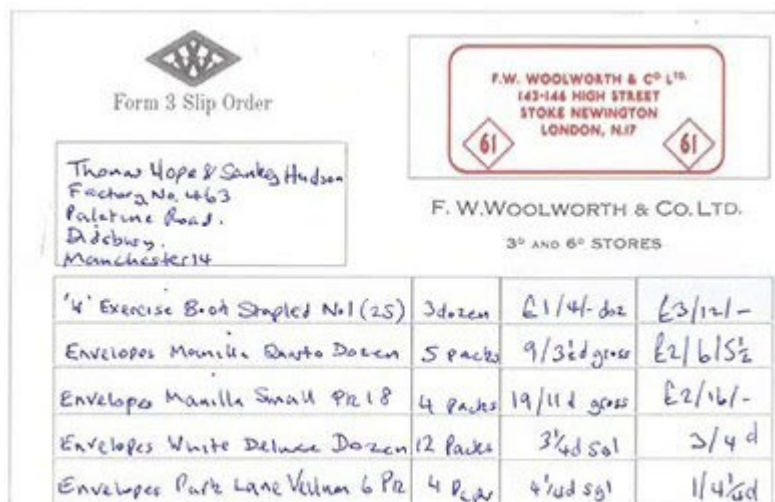 W
Form 3 Slip Order
F.W. WOOLWORTH & Cº Lᵀᴰ.
143-146 HIGH STREET
STOKE NEWINGTON
LONDON, N.17
61 61
Thomas Hope & Sankey Hudson
Factory No. 463
Palatine Road.
Didsbury.
Manchester 14
F. W. WOOLWORTH & CO. LTD.
3ᴰ AND 6ᴰ STORES
'W' Exercise Book Stapled No1 (25) 3 dozen £1/4/- doz £3/12/-
Envelopes Manilla Quarto Dozen 5 packs 9/3½d gross £2/6/5½
Envelopes Manilla Small Pk 18 4 Packs 19/11d gross £2/16/-
Envelopes White Deluxe Dozen 12 Packs 3¼d Sgl 3/4d
Envelopes Park Lane Vellum 6 Pk 4 4¼d Sgl